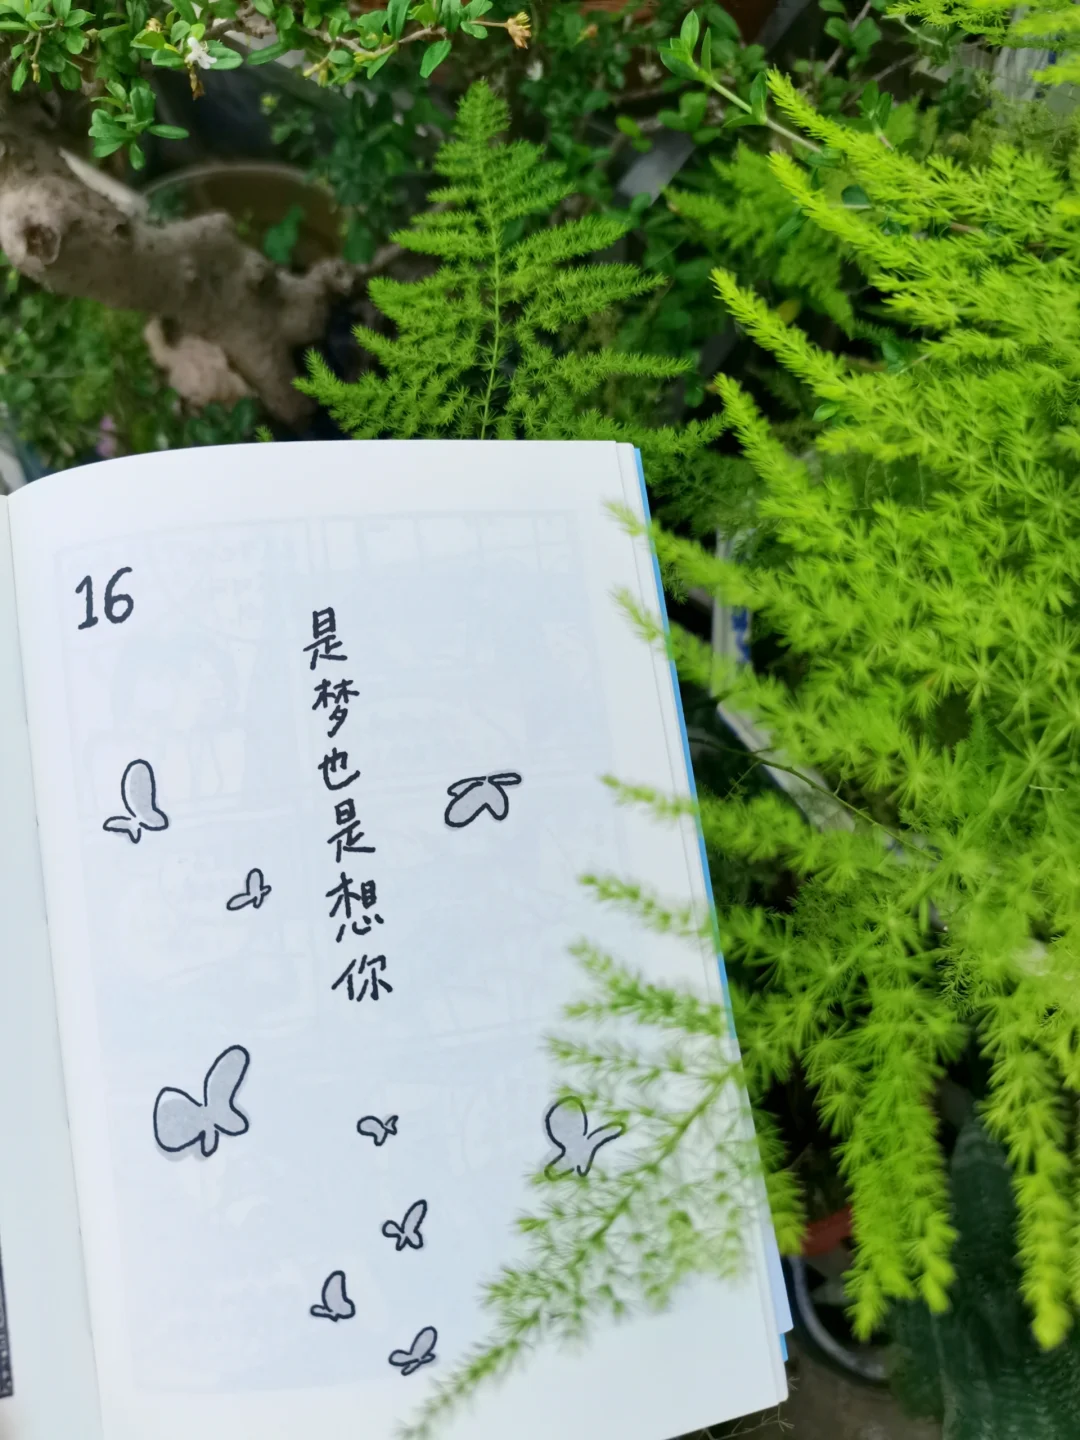 16
是梦也是想你